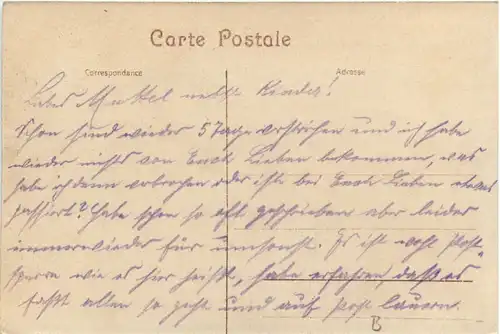 Carte Postale
Correspondance
Adresse
Liebes Muttel nebst Kinder!
Schon sind wieder 5 Tage verstrichen und ich habe
wieder nichts von Euch Lieben bekommen, was
habe ich denn verbrochen oder ists bei Euch Lieben etwas
passiert? Habe schon so oft geschrieben aber leider
immerwieder für umsonst. Es ist wohl Post-
sperre wie es hier heißt, habe erfahren, daß es
fast allen so geht und auf Post lauern.